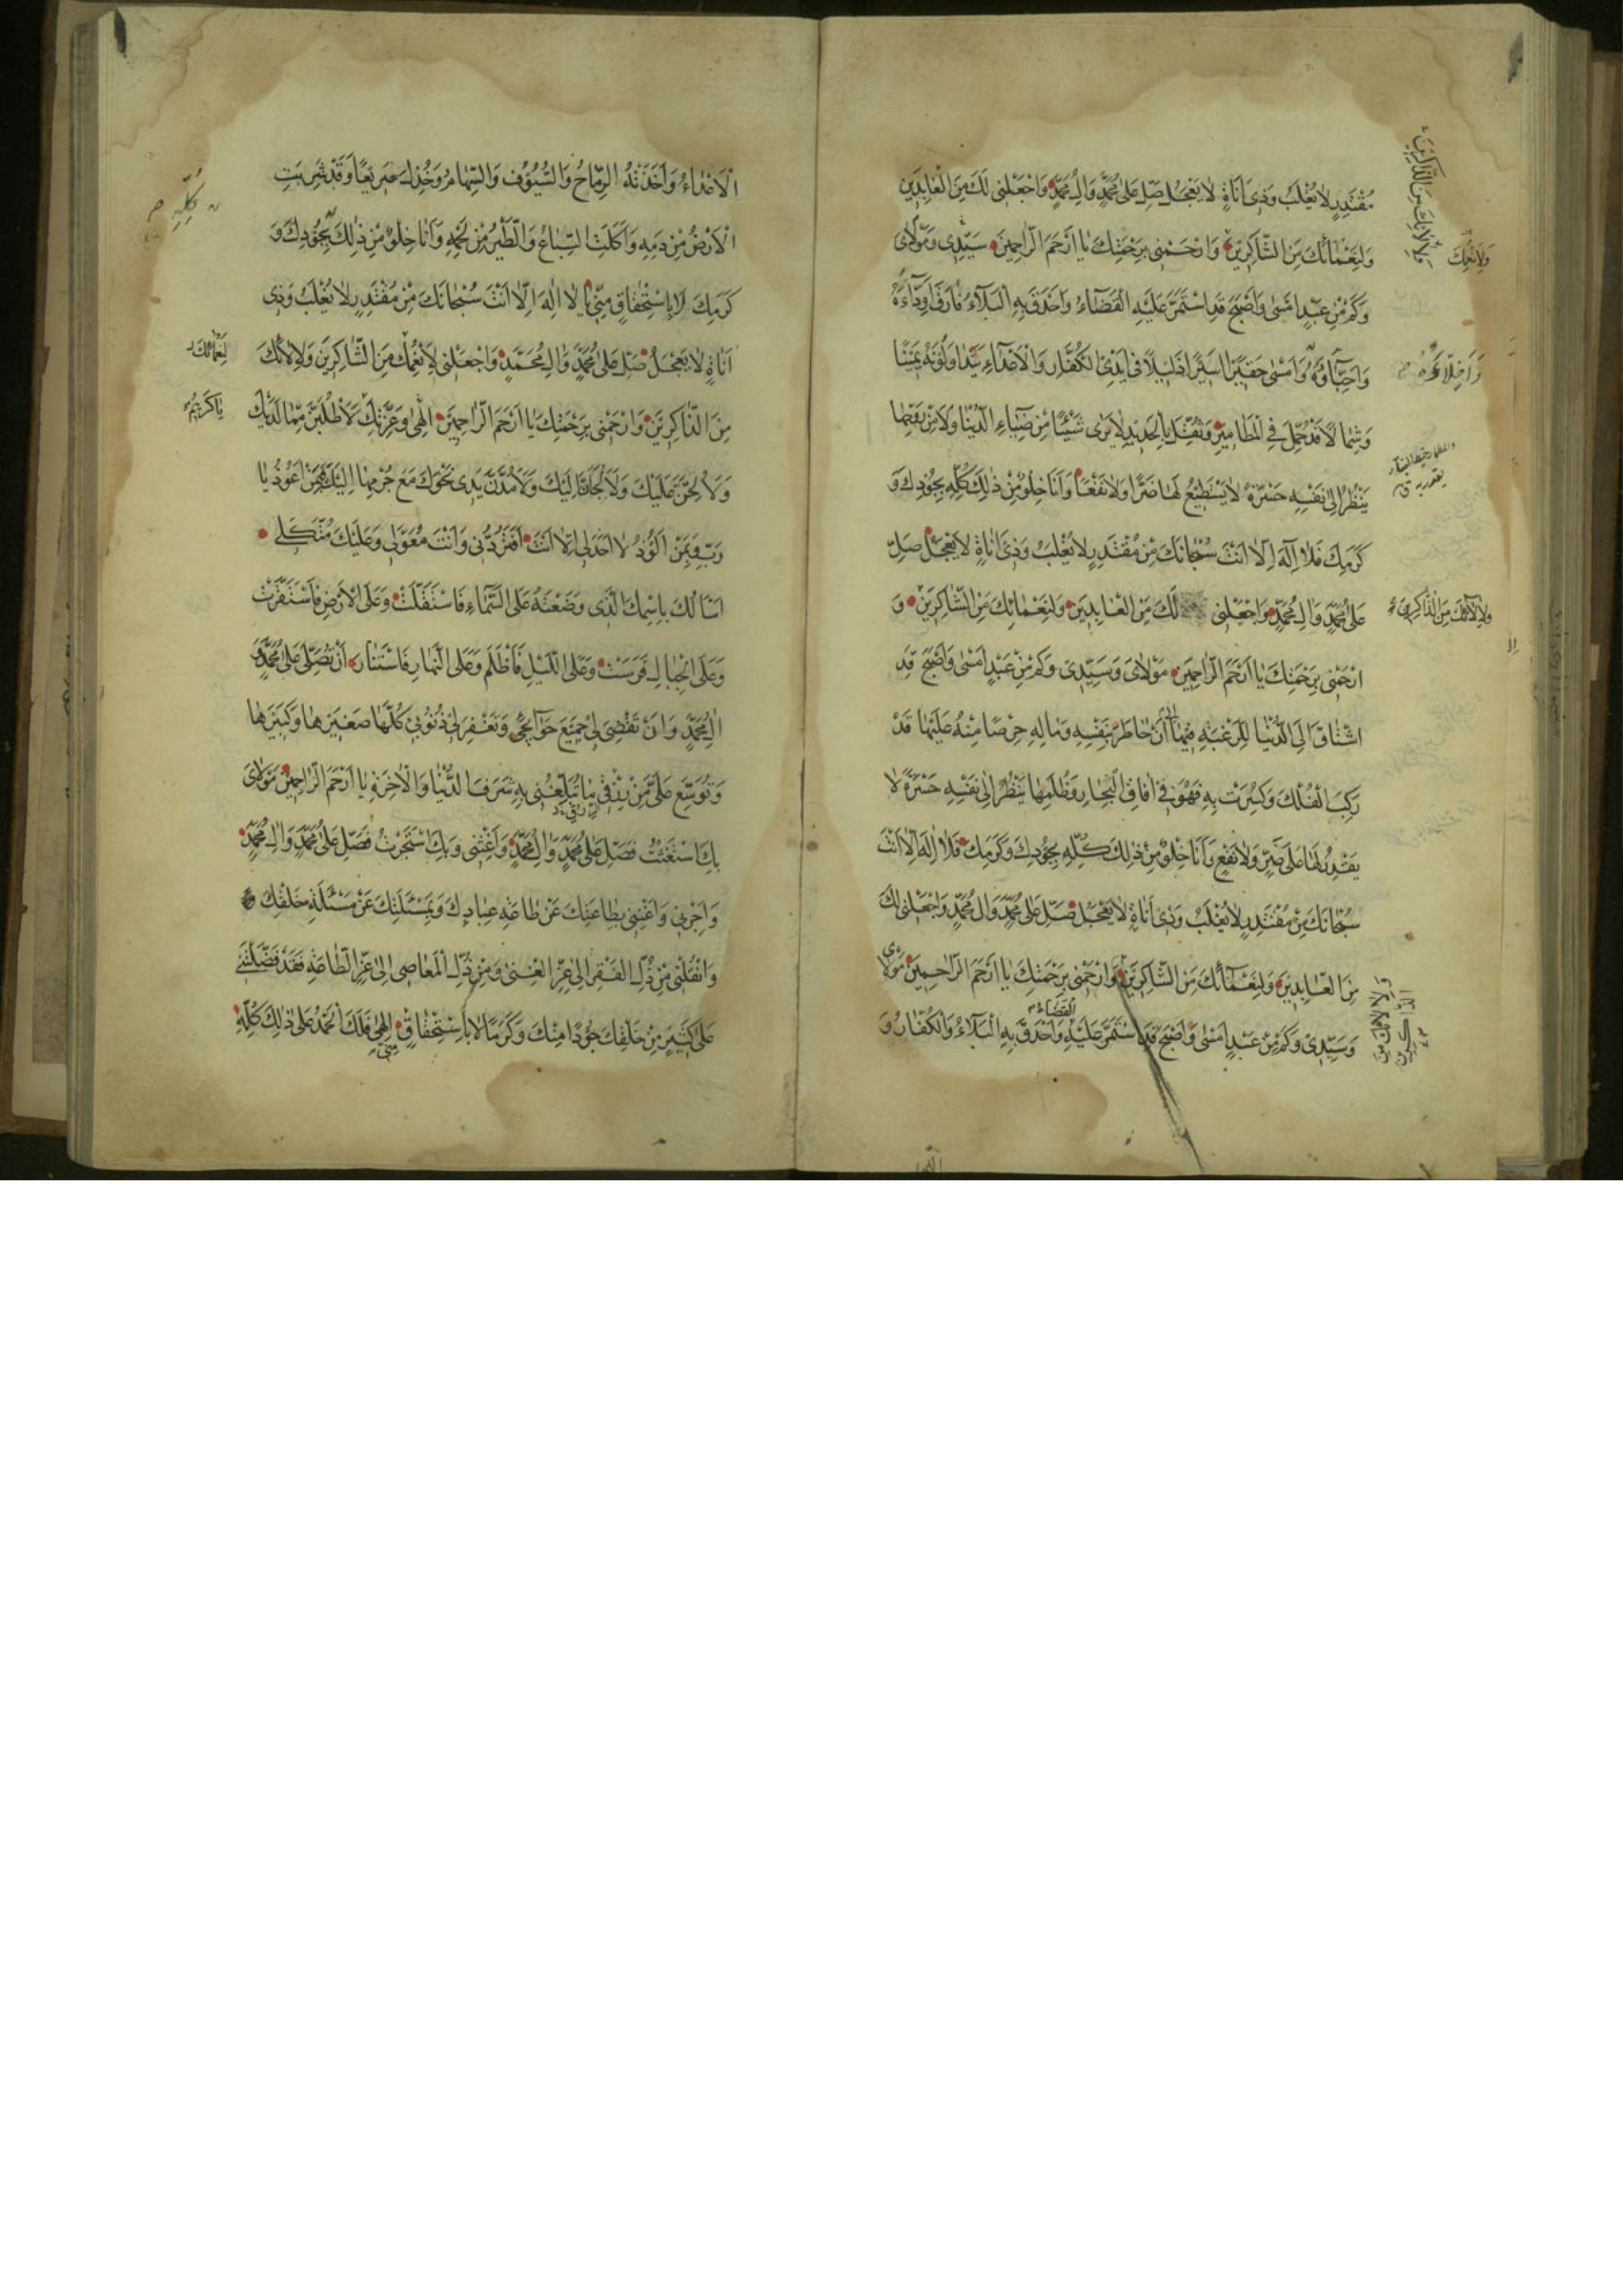 مُقْتَدِرٍ لَا يُغْلَبُ وَذِي أَنَاةٍ لَا يَعْجَلُ صَلِّ عَلَىٰ مُحَمَّدٍ وَآلِ مُحَمَّدٍ وَاجْعَلْنِي لَكَ مِنَ الْعَابِدِينَ
وَلِنَعْمَائِكَ مِنَ الشَّاكِرِينَ وَارْحَمْنِي بِرَحْمَتِكَ يَا أَرْحَمَ الرَّاحِمِينَ سَيِّدِي وَمَوْلَايَ
وَكَمْ مِنْ عَبْدٍ أَمْسَىٰ وَأَصْبَحَ قَدِ اسْتَمَرَّ عَلَيْهِ الْقَضَاءُ وَأَحْدَقَ بِهِ الْبَلَاءُ فَارَقَ أَوِدَّاءَهُ
وَأَحِبَّاؤَهُ وَأَمْسَىٰ حَقِيرًا أَسِيرًا ذَلِيلًا فِي أَيْدِي الْكُفَّارِ وَالْأَعْدَاءِ يَتَدَاوَلُونَهُ يَمِينًا
وَشِمَالًا قَدْ حُمِلَ فِي الْمَطَامِيرِ وَثُقِّلَ بِالْحَدِيدِ لَا يَرَىٰ شَيْئًا مِنْ ضِيَاءِ الدُّنْيَا وَلَا مِنْ رَوْحِهَا
يَنْظُرُ إِلَىٰ نَفْسِهِ حَسْرَةً لَا يَسْتَطِيعُ لَهَا ضَرًّا وَلَا نَفْعًا وَأَنَا خِلْوٌ مِنْ ذَٰلِكَ كُلِّهِ بِجُودِكَ وَ
كَرَمِكَ فَلَا إِلَهَ إِلَّا أَنْتَ سُبْحَانَكَ مِنْ مُقْتَدِرٍ لَا يُغْلَبُ وَذِي أَنَاةٍ لَا يَعْجَلُ صَلِّ
عَلَىٰ مُحَمَّدٍ وَآلِ مُحَمَّدٍ وَاجْعَلْنِي لَكَ مِنَ الْعَابِدِينَ وَلِنَعْمَائِكَ مِنَ الشَّاكِرِينَ وَ
وَلِآلَائِكَ مِنَ الذَّاكِرِينَ
ارْحَمْنِي بِرَحْمَتِكَ يَا أَرْحَمَ الرَّاحِمِينَ مَوْلَايَ وَسَيِّدِي وَكَمْ مِنْ عَبْدٍ أَمْسَىٰ وَأَصْبَحَ قَدِ
اشْتَاقَ إِلَى الدُّنْيَا لِلرَّغْبَةِ فِيهَا إِلَىٰ أَنْ خَاطَرَ بِنَفْسِهِ وَمَالِهِ حِرْصًا مِنْهُ عَلَيْهَا قَدْ
رَكِبَ الْفُلْكَ وَكُسِرَتْ بِهِ فَهُوَ فِي آفَاقِ الْبِحَارِ وَظُلَمِهَا يَنْظُرُ إِلَىٰ نَفْسِهِ حَسْرَةً لَا
يَقْدِرُ لَهَا عَلَىٰ ضَرٍّ وَلَا نَفْعٍ وَأَنَا خِلْوٌ مِنْ ذَٰلِكَ كُلِّهِ بِجُودِكَ وَكَرَمِكَ فَلَا إِلَهَ إِلَّا أَنْتَ
سُبْحَانَكَ مِنْ مُقْتَدِرٍ لَا يُغْلَبُ وَذِي أَنَاةٍ لَا يَعْجَلُ صَلِّ عَلَىٰ مُحَمَّدٍ وَآلِ مُحَمَّدٍ وَاجْعَلْنِي لَكَ
مِنَ الْعَابِدِينَ وَلِنَعْمَائِكَ مِنَ الشَّاكِرِينَ وَارْحَمْنِي بِرَحْمَتِكَ يَا أَرْحَمَ الرَّاحِمِينَ مَوْلَايَ
الْقَضَاءُ
وَسَيِّدِي وَكَمْ مِنْ عَبْدٍ أَمْسَىٰ وَأَصْبَحَ قَدِ اسْتَمَرَّ عَلَيْهِ وَأَحْدَقَ بِهِ الْبَلَاءُ وَالْكُفَّارُ وَ
الْأَعْدَاءُ وَأَخَذَتْهُ الرِّمَاحُ وَالسُّيُوفُ وَالسِّهَامُ وَجُدِّلَ صَرِيعًا وَقَدْ شَرِبَتِ
الْأَرْضُ مِنْ دَمِهِ وَأَكَلَتِ السِّبَاعُ وَالطَّيْرُ مِنْ لَحْمِهِ وَأَنَا خِلْوٌ مِنْ ذَٰلِكَ بِجُودِكَ وَ
كُلِّهِ
كَرَمِكَ لَا بِاسْتِحْقَاقٍ مِنِّي يَا لَا إِلَهَ إِلَّا أَنْتَ سُبْحَانَكَ مِنْ مُقْتَدِرٍ لَا يُغْلَبُ وَذِي
أَنَاةٍ لَا يَعْجَلُ صَلِّ عَلَىٰ مُحَمَّدٍ وَآلِ مُحَمَّدٍ وَاجْعَلْنِي لِأَنْعُمِكَ مِنَ الشَّاكِرِينَ وَلِآلَائِكَ
لِنَعْمَائِكَ
مِنَ الذَّاكِرِينَ وَارْحَمْنِي بِرَحْمَتِكَ يَا أَرْحَمَ الرَّاحِمِينَ إِلَهِي وَعِزَّتِكَ لَأَطْلُبَنَّ مِمَّا لَدَيْكَ
يَا كَرِيمُ
وَلَأُلِحَّنَّ عَلَيْكَ وَلَأَلْجَأَنَّ إِلَيْكَ وَلَأَمُدَّنَّ يَدِي نَحْوَكَ مَعَ جُرْمِهَا إِلَيْكَ فَبِمَنْ أَعُوذُ يَا
رَبِّ وَبِمَنْ أَلُوذُ لَا أَحَدَ لِي إِلَّا أَنْتَ أَفَتَرُدُّنِي وَأَنْتَ مُعَوَّلِي وَعَلَيْكَ مُتَّكَلِي
أَسْأَلُكَ بِاسْمِكَ الَّذِي وَضَعْتَهُ عَلَى السَّمَاءِ فَاسْتَقَلَّتْ وَعَلَى الْأَرْضِ فَاسْتَقَرَّتْ
وَعَلَى الْجِبَالِ فَرَسَتْ وَعَلَى اللَّيْلِ فَأَظْلَمَ وَعَلَى النَّهَارِ فَاسْتَنَارَ أَنْ تُصَلِّيَ عَلَىٰ مُحَمَّدٍ وَ
آلِ مُحَمَّدٍ وَأَنْ تَقْضِيَ لِي جَمِيعَ حَوَائِجِي وَتَغْفِرَ لِي ذُنُوبِي كُلَّهَا صَغِيرَهَا وَكَبِيرَهَا
وَتُوَسِّعَ عَلَيَّ مِنْ رِزْقِي مَا تُبَلِّغُنِي بِهِ شَرَفَ الدُّنْيَا وَالْآخِرَةِ يَا أَرْحَمَ الرَّاحِمِينَ مَوْلَايَ
بِكَ اسْتَغَثْتُ فَصَلِّ عَلَىٰ مُحَمَّدٍ وَآلِ مُحَمَّدٍ وَأَغِثْنِي وَبِكَ اسْتَجَرْتُ فَصَلِّ عَلَىٰ مُحَمَّدٍ وَآلِ مُحَمَّدٍ
وَأَجِرْنِي وَأَغْنِنِي بِطَاعَتِكَ عَنْ طَاعَةِ عِبَادِكَ وَبِمَسْئَلَتِكَ عَنْ مَسْئَلَةِ خَلْقِكَ
وَانْقُلْنِي مِنْ ذُلِّ الْفَقْرِ إِلَىٰ عِزِّ الْغِنَىٰ وَمِنْ ذُلِّ الْمَعَاصِي إِلَىٰ عِزِّ الطَّاعَةِ فَقَدْ فَضَّلْتَنِي
عَلَىٰ كَثِيرٍ مِنْ خَلْقِكَ جُودًا مِنْكَ وَكَرَمًا لَا بِاسْتِحْقَاقٍ إِلَهِي فَلَكَ الْحَمْدُ عَلَىٰ ذَٰلِكَ كُلِّهِ
مِنِّي